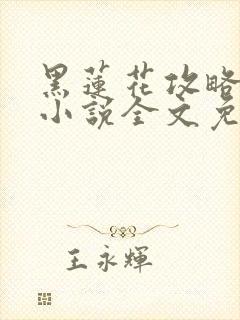 黑蓮花攻略
小說全文免
王永輝